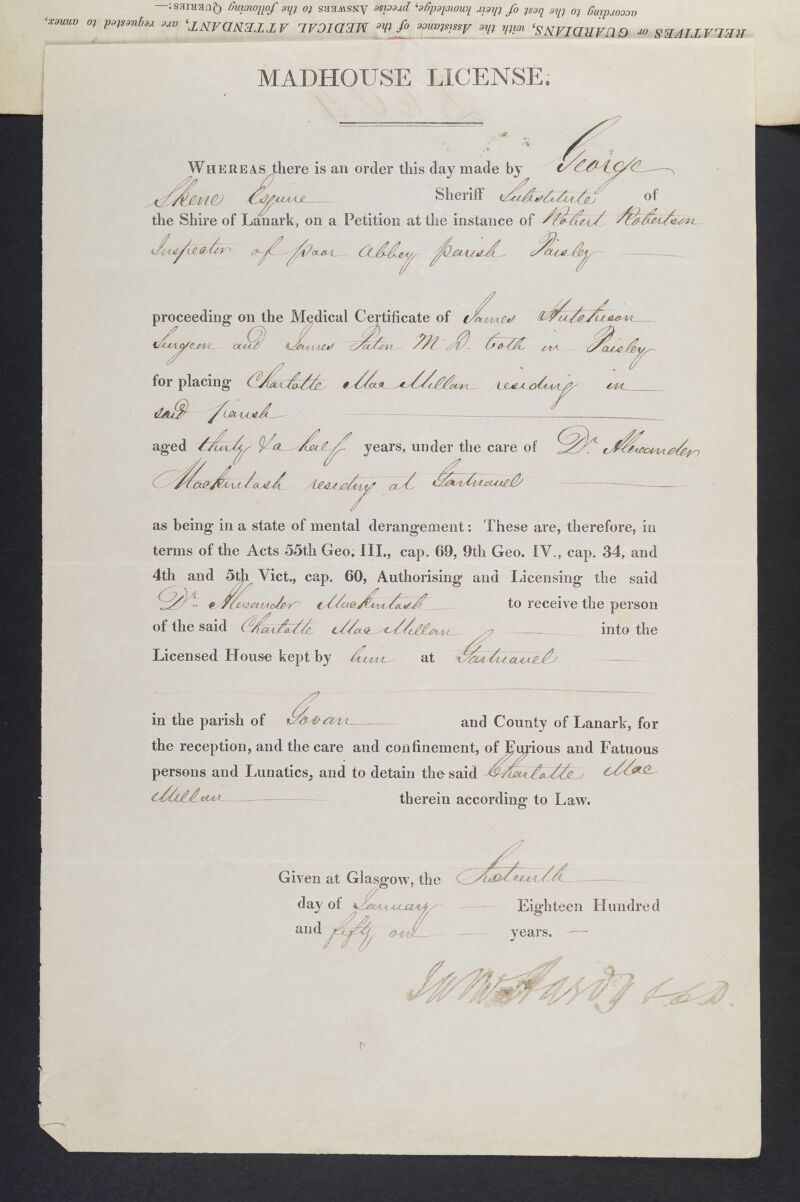 according to the best of their knowledge, precise ANSWERS to the following QUERIES:—
RELATIVES or GUARDIANS, with the Assistance of the MEDICAL ATTENDANT, are requested to annex,
MADHOUSE LICENSE.
WHEREAS there is an order this day made by George
Skene Esquire Sheriff Substitute of
the Shire of Lanark, on a Petition at the instance of Robert Robertson
Inspector of poor Abbey parish Paisley
proceeding on the Medical Certificate of James Hutchison
Surgeon and James Paton M.D. both in Paisley
for placing Charlotte Mac Millan residing in
said parish
aged thirty & a half years, under the care of Dr. Alexander
Mackintosh residing at Gartnavel
as being in a state of mental derangement: These are, therefore, in
terms of the Acts 55th Geo. III., cap. 69, 9th Geo. IV., cap. 34, and
4th and 5th Vict., cap. 60, Authorising and Licensing the said
Dr. Alexander Mackintosh to receive the person
of the said Charlotte Mac Millan into the
Licensed House kept by him at Gartnavel
in the parish of Govan and County of Lanark, for
the reception, and the care and confinement, of Furious and Fatuous
persons and Lunatics, and to detain the said Charlotte Mac
Millan therein according to Law.
Given at Glasgow, the Sixteenth
day of January Eighteen Hundred
and fifty one years. —
Hardy